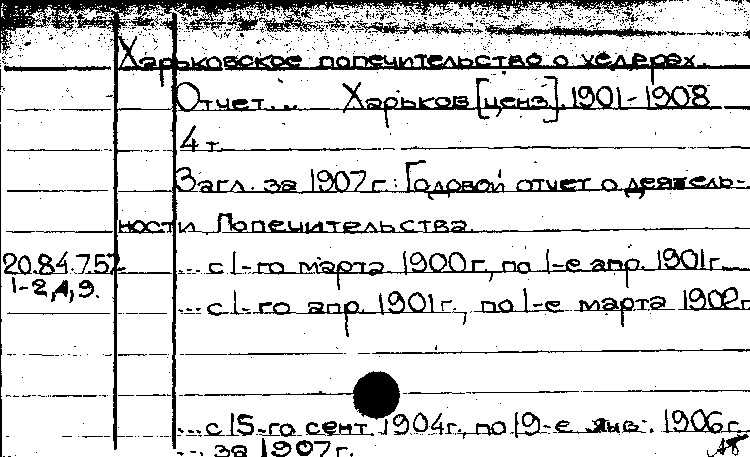 Харьковское попечительство о хедерах.
Отчет... Харьков [ценз], 1901-1908
4 т.
Загл. за 1907 г.: Годовой отчет о деятель-
ности Попечительства.
20.84.7.52 ... с 1-го марта 1900г., по 1-е апр. 1901г.
1-2,4,9.
... с 1-го апр. 1901г., по 1-е марта 1902г.
... с 15-го сент. 1904г., по 19-е янв. 1906г.
... за 1907г.